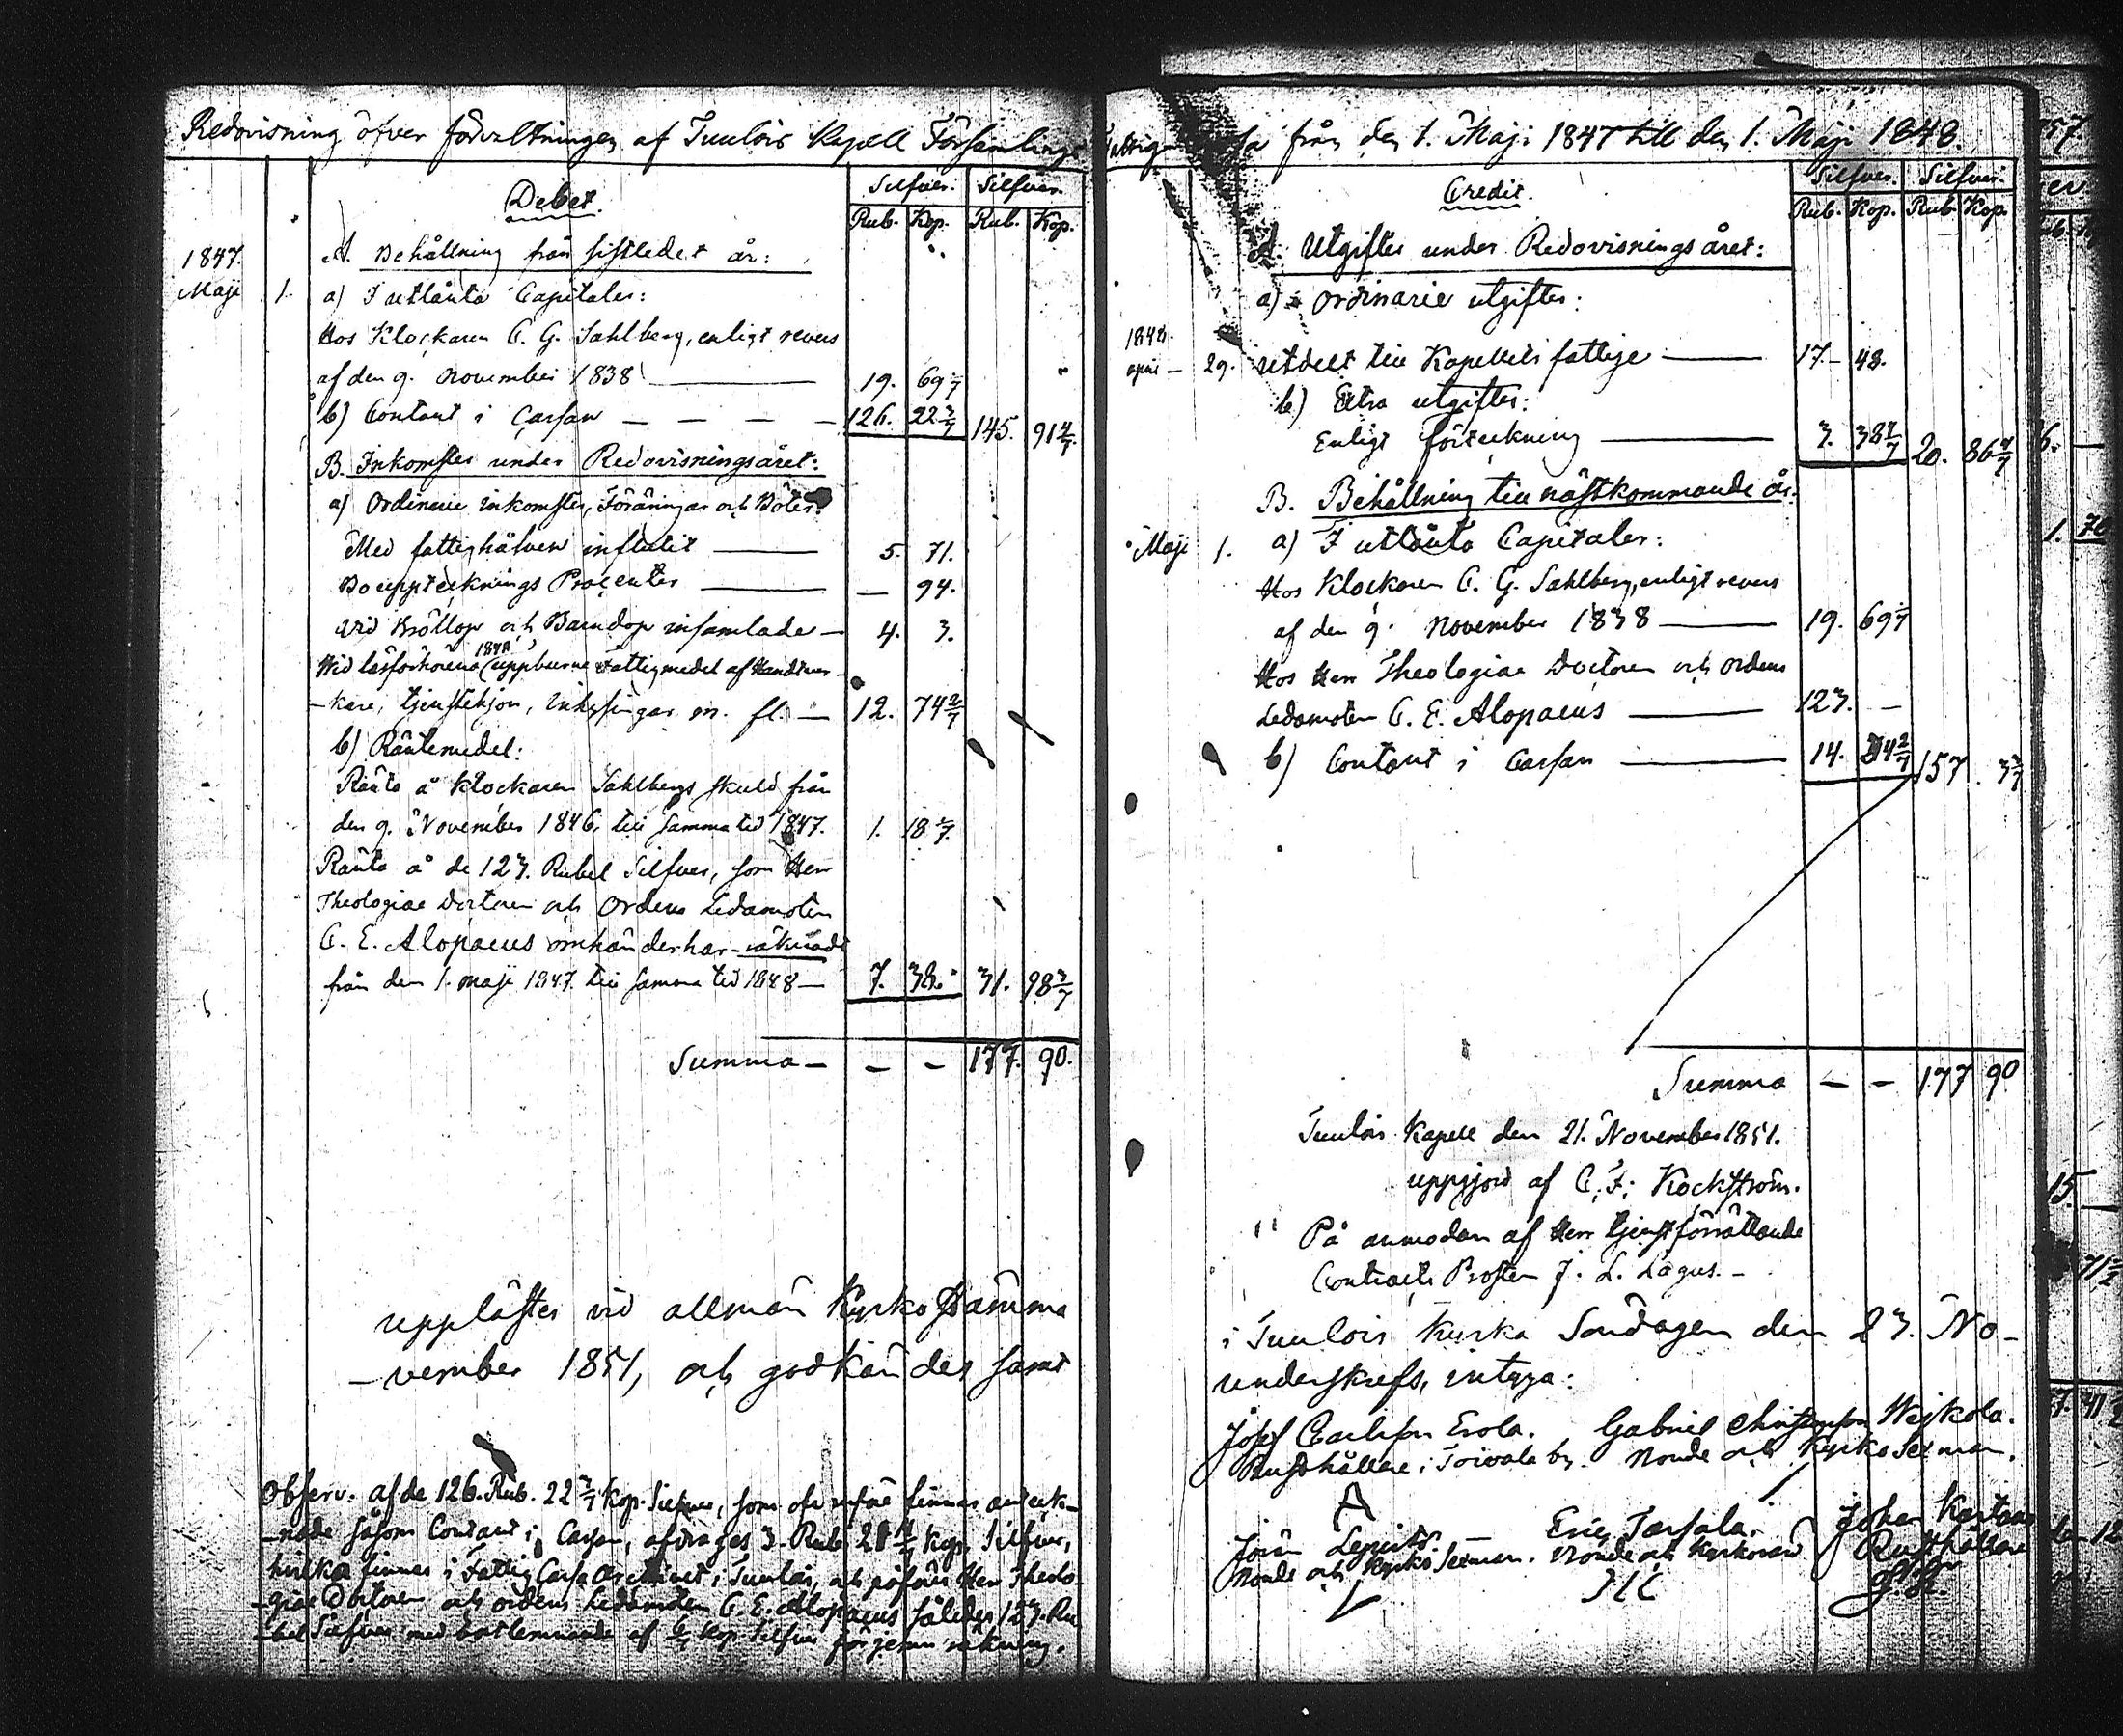 Redovisning öfver förvaltningen af Tuulois Kapell Församlings
Debet.
Silfver. Silfver.
Rub. Kop. Rub. Kop.
1847. A. Behållning från sistledet år:
Maji 1. a) I utlånta Capitaler:
Hos Klockaren C. G. Sahlberg, enligt revers
af den 9. November 1838 — 19. 69 1/7
b) Contant i Cassan — — — — 126. 22 3/7 145. 91 4/7.
B. Inkomster under Redovisningsåret:
a) Ordinarie inkomster, Föräringar och Böter.
Med fattighåfven influtit — 5. 71.
Bouppteknings Procenter — — 94.
Vid Bröllop och Barndop insamlade — 4. 3.
1848
Wid läsförhören (uppburne Fattigmedel af Handtver-
-kare, tjenstehjon, inhysingar m. fl. — 12. 74 2/7
b) Räntemedel:
Ränta å Klockaren Sahlbergs skuld från
den 9. November 1846, till samma tid 1847. 1. 18 1/7.
Ränta å de 123. Rubel Silfver, som Herr
Theologiae Doctoren och Ordens Ledamoten
C. E. Alopaeus omhänderhar räknade
från den 1. Maji 1847. till samma tid 1848 — 7. 38. 31. 98 3/7
Summa — — — 177. 90.
uppläftes vid allmän Kyrkostämma
-vember 1851, och godkändes samt
Observ. af de 126. Rub. 22 3/7 Kop. Silfver, som ofvanföre finnes anteck-
-nade såsom Contant i Cassan, afdrages 3. Rub. 21 4/7 Kop. Silfver,
hvilka finnes i Fattig Cassa i Tuulois, och påföres Herr Theolo-
-giae Doctoren och ordens Ledamoten C. E. Alopaeus således 123. Ru-
-bel Silfver med bortlemnande af 6/7 Kop. Silfver för jemn räkning.
Fattig Cassa från den 1. Maji 1847 till den 1. Maji 1848.
Credit.
Silfver. Silfver.
Rub. Kop. Rub. Kop.
A. Utgifter under Redovisningsåret:
a) Ordinarie utgifter:
1848.
April — 29. Utdelt till Kapellets fattige — 17. — 48.
b) Extra utgifter:
Enligt förteckning — 3. 38 4/7 20. 86 4/7
B. Behållning till nästkommande år.
Maji 1. a) I utlånta Capitaler:
Hos Klockaren C. G. Sahlberg, enligt revers
af den 9. November 1838 — 19. 69 1/7
Hos Herr Theologiae Doctoren och Ordens
Ledamoten C. E. Alopaeus — 123. —
b) Contant i Cassan — 14. 34 2/7 157. 3 3/7
Summa — — 177 90
Tuulois Kapell den 21. November 1851.
uppgjord af C. F. Kockström.
På anmodan af Herr tjenstförrättande
Contracts Prosten J. L. Lagus. —
i Tuulois Kyrka Söndagen den 23. No-
underskrefs, intyga:
Josef Carlsson Erola. Gabriel Wejkola.
Rusthållare i Toivola by. Nemde och Kyrko Sexman.
Lepistö. Eric Tarsala. Johan
Nemde och Kyrko Sexman. Nemde och Kyrkovärd Rusthållare